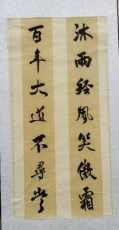 沐雨经风笑傲霜
百年大道不寻常